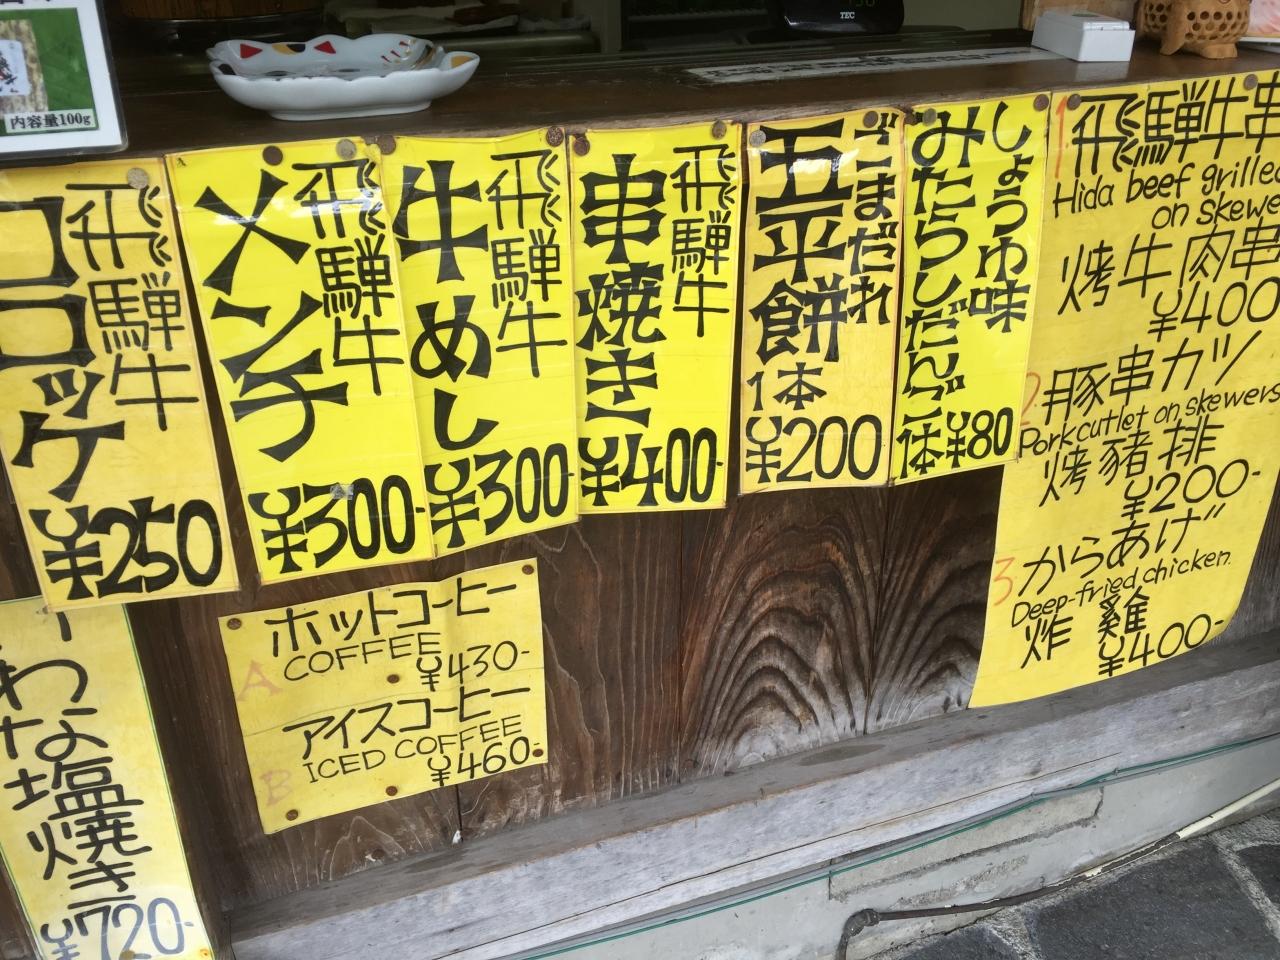 内容量100g
TEC
飛騨牛
コロッケ
¥250
飛騨牛
メンチ
¥300-
飛騨牛
牛めし
¥300-
飛騨牛
串焼き
¥400-
ごまだれ
五平餅
1本
¥200
しょうゆ味
みたらしだんご
一体¥80
1.飛騨牛串
Hida beef grilled
on skewe
烤牛肉串
¥400
2.豚串カツ
Pork cutlet on skewers
烤豬排
¥200-
3からあげ
Deep-fried chicken.
炸雞
¥400-
A
ホットコーヒー
COFFEE
¥430-
B
アイスコーヒー
ICED COFFEE
¥460-
わな塩焼き
¥720-